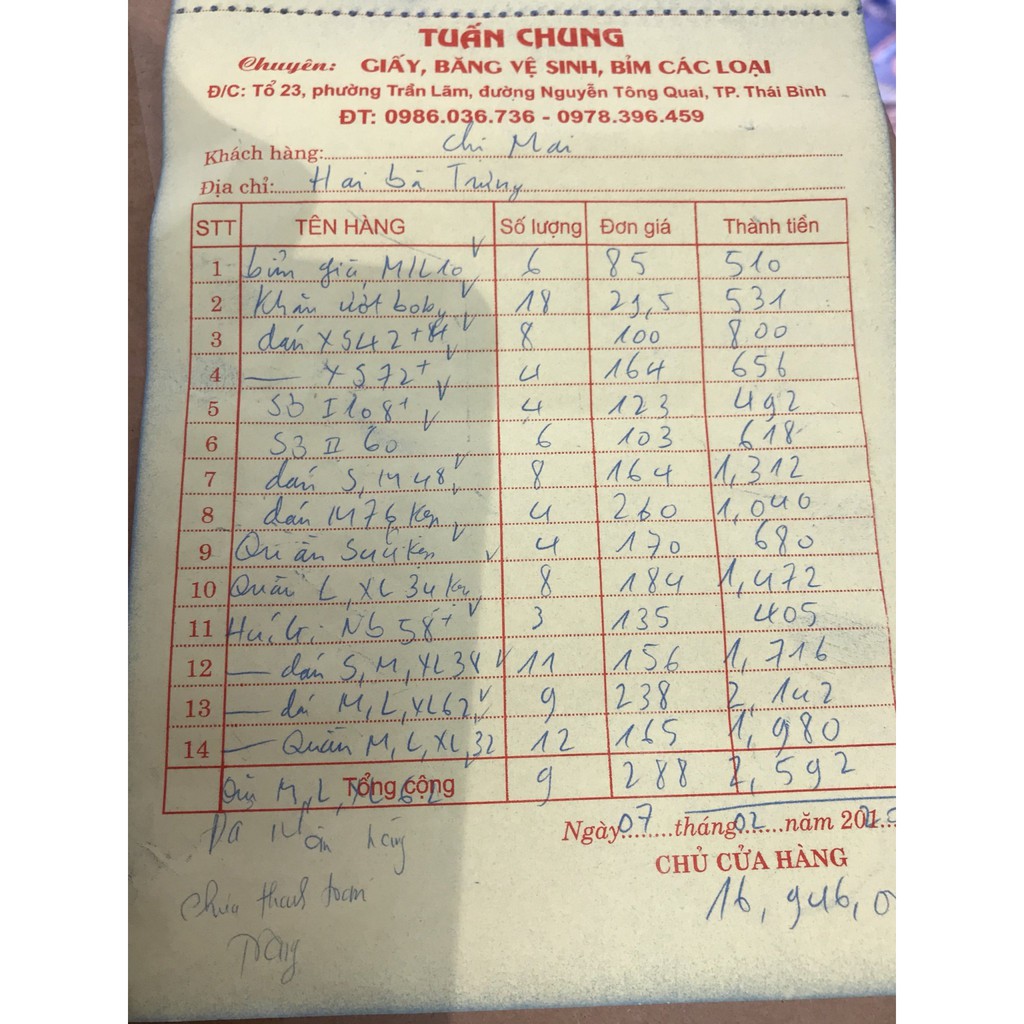 TUẤN CHUNG
Chuyên: GIẤY, BĂNG VỆ SINH, BỈM CÁC LOẠI
Đ/C: Tổ 23, phường Trần Lãm, đường Nguyễn Tông Quai, TP. Thái Bình
ĐT: 0986.036.736 - 0978.396.459
Khách hàng: Chị Mai
Địa chỉ: Hai bà Trưng
STT TÊN HÀNG Số lượng Đơn giá Thành tiền
1 bỉm già M/L10 6 85 510
2 Khăn ướt boby 18 29,5 531
3 dán XS42 8 100 800
4 — XS72+ 4 164 656
5 S3 I 108+ 4 123 492
6 S3 II 60 6 103 618
7 dán S, M 48 8 164 1,312
8 dán M76 4 260 1,040
9 Quần 4 170 680
10 Quần L, XL 34 8 184 1,472
11 Nb 58+ 3 135 405
12 — dán S, M, XL38 11 156 1,716
13 — dá M, L, XL62 9 238 2,142
14 — Quần M, L, XL, 32 12 165 1,980
Tổng cộng M, L, 62 9 288 2,592
Đã nhận hàng
Ngày 07 tháng 02 năm 201
CHỦ CỬA HÀNG
16,946,0
Chưa thanh toán
Trang